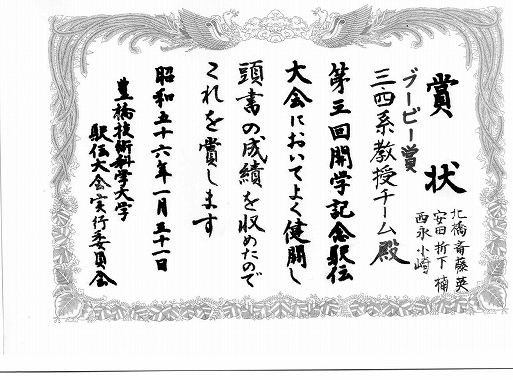 賞状
北橋 斎藤 英
安田 折下 楠
西永 小崎
ブービー賞
三四系教授チーム殿
第三回開学記念駅伝
大会においてよく健闘し
頭書の成績を収めたので
これを賞します
昭和五十六年一月三十一日
豊橋技術科学大学
駅伝大会実行委員会